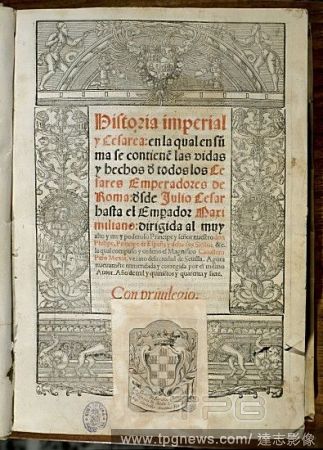 Historia imperial
y Cesarea: en la qual en su
ma se contienē las vidas
y hechos d̄ todos los Ce
sares Emperadores de
Roma: d̄sde Julio Cesar
hasta el Emperador Maxi
miliano: dirigida al muy
alto y muy poderoso Principe y señor nuestro don
Philipe, Principe de España y de las dos Sicilias, &c.
la qual compuso y ordeno el Magnifico Cavallero
Pero Mexia, vezino de la ciudad de Sevilla. Agora
nuevamēte enmendada y corregida por el mismo
Autor. Año de mil y quinientos y quarenta y siete.
Con privilegio:
TPG
www.tpgnews.com / 達志影像